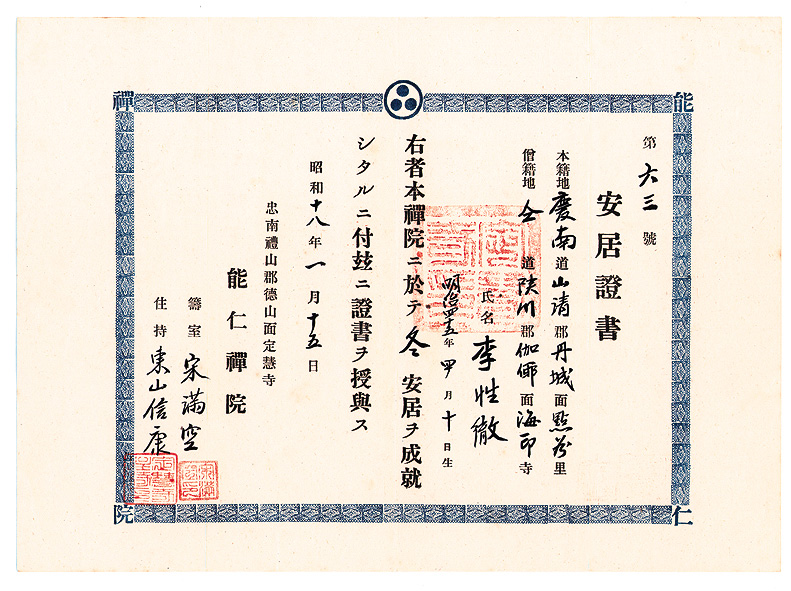 能
仁
禪
院
第六三號
安居證書
本籍地 慶南道山淸郡丹城面默谷里
僧籍地 仝道陜川郡伽倻面海印寺
氏名 李性徹
明治四五年四月十日生
右者本禪院ニ於テ冬安居ヲ成就
シタルニ付玆ニ證書ヲ授與ス
昭和十八年一月十五日
忠南禮山郡德山面定慧寺
能仁禪院
籌室 宋滿空
住持 東山信康